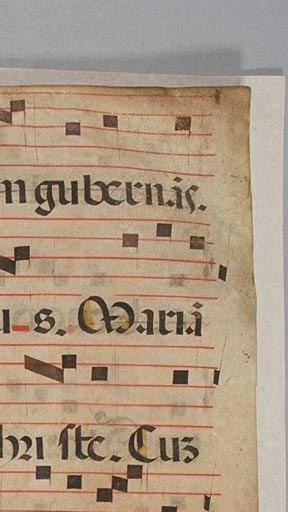 n gubernãs.
u_s. Mariã
hri ste. Cuz